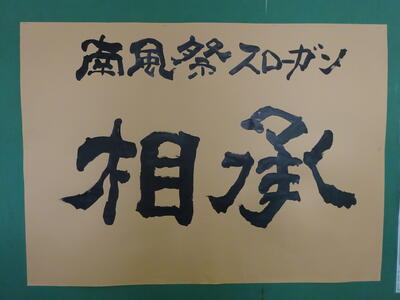 南風祭スローガン
相承